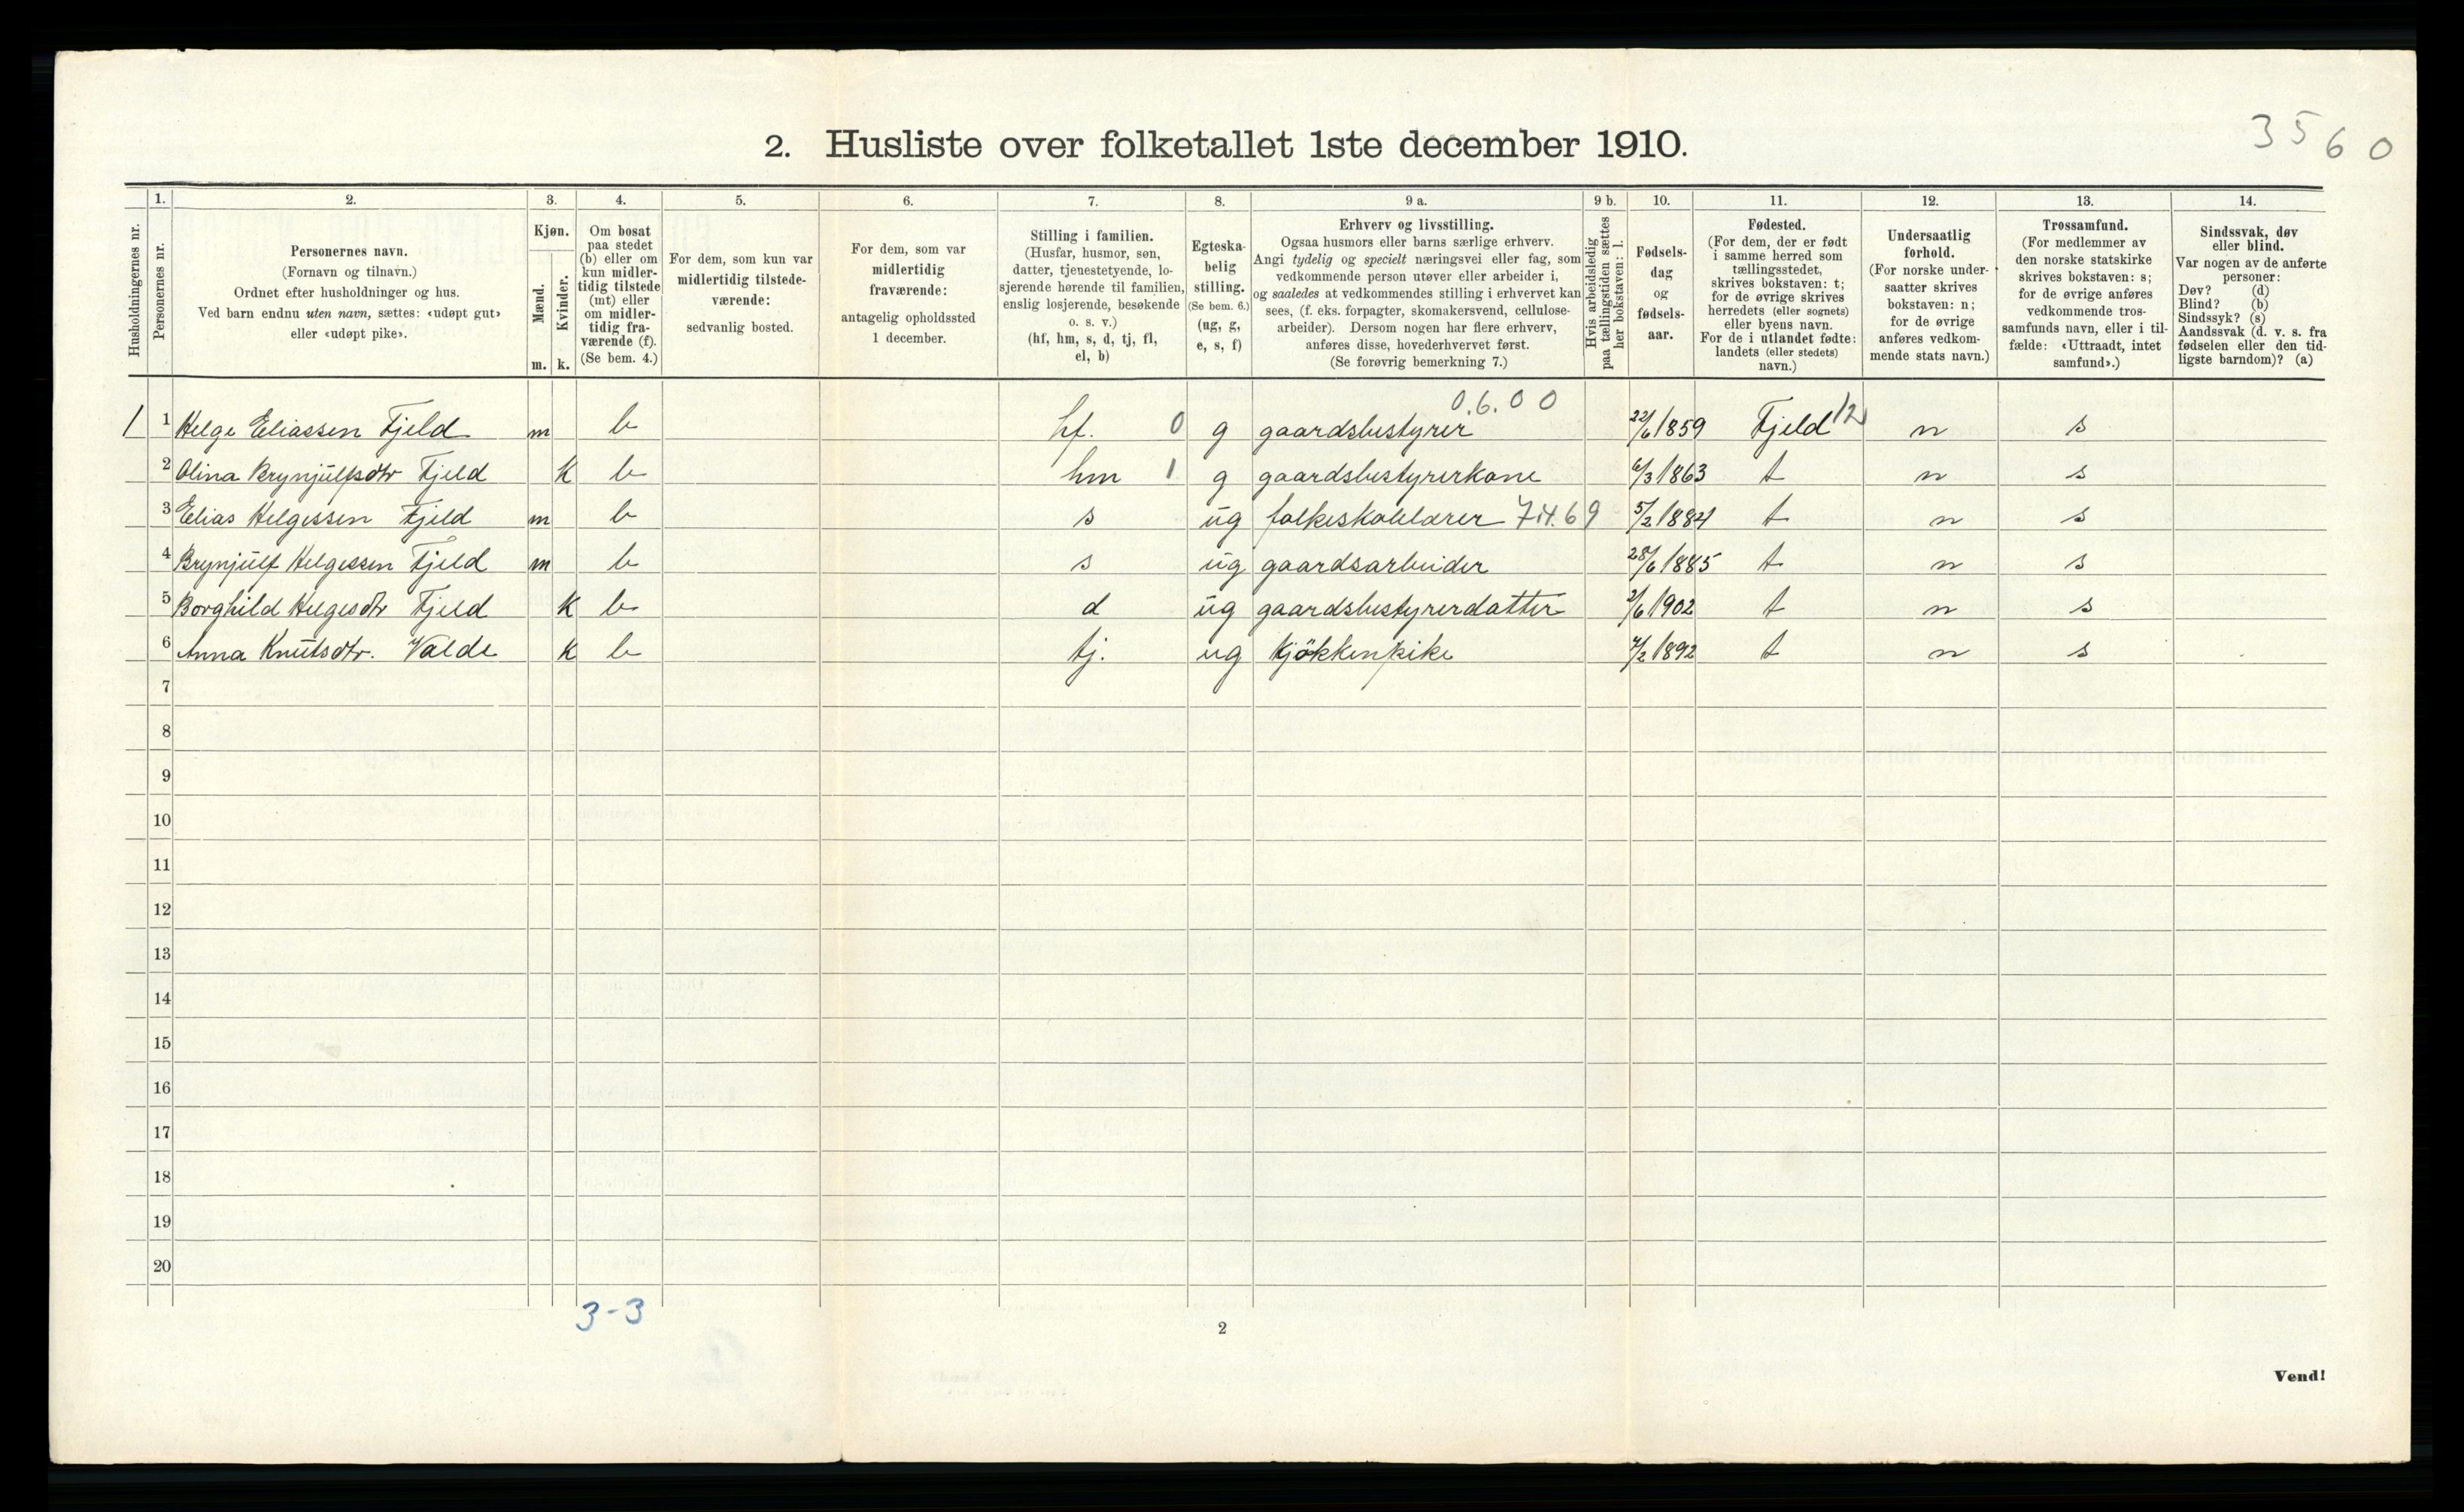 3560
2. Husliste over folketallet 1ste december 1910.
Husholdningernes nr.
1.
Personernes nr.
2.
Personernes navn.
(Fornavn og tilnavn.)
Ordnet efter husholdninger og hus.
Ved barn endnu uten navn, sættes: «udøpt gut»
eller «udøpt pike».
3.
Kjøn.
Mænd.
Kvinder.
m. k.
4.
Om bosat
paa stedet
(b) eller om
kun midler-
tidig tilstede
(mt) eller
om midler-
tidig fra-
værende (f).
(Se bem. 4.)
5.
For dem, som kun var
midlertidig tilstede-
værende:
sedvanlig bosted.
6.
For dem, som var
midlertidig
fraværende:
antagelig opholdssted
1 december.
7.
Stilling i familien.
(Husfar, husmor, søn,
datter, tjenestetyende, lo-
sjerende hørende til familien,
enslig losjerende, besøkende
o. s. v.)
(hf, hm, s, d, tj, fl,
el, b)
8.
Egteska-
belig
stilling.
(Se bem. 6.)
(ug, g,
e, s, f)
9 a.
Erhverv og livsstilling.
Ogsaa husmors eller barns særlige erhverv.
Angi tydelig og specielt næringsvei eller fag, som
vedkommende person utøver eller arbeider i,
og saaledes at vedkommendes stilling i erhvervet kan
sees, (f. eks. forpagter, skomakersvend, cellulose-
arbeider). Dersom nogen har flere erhverv,
anføres disse, hovederhvervet først.
(Se forøvrig bemerkning 7.)
9 b.
Hvis arbeidsledig
paa tællingstiden sættes
her bokstaven: l.
10.
Fødsels-
dag
og
fødsels-
aar.
11.
Fødested.
(For dem, der er født
i samme herred som
tællingsstedet,
skrives bokstaven: t;
for de øvrige skrives
herredets (eller sognets)
eller byens navn.
For de i utlandet fødte:
landets (eller stedets)
navn.)
12.
Undersaatlig
forhold.
(For norske under-
saatter skrives
bokstaven: n;
for de øvrige
anføres vedkom-
mende stats navn.)
13.
Trossamfund.
(For medlemmer av
den norske statskirke
skrives bokstaven: s;
for de øvrige anføres
vedkommende tros-
samfunds navn, eller i til-
fælde: «Uttraadt, intet
samfund».)
14.
Sindssvak, døv
eller blind.
Var nogen av de anførte
personer:
Døv? (d)
Blind? (b)
Sindssyk? (s)
Aandssvak (d. v. s. fra
fødselen eller den tid-
ligste barndom)? (a)
0.6.00
1 1 Helge Eliassen Fjeld m b hf. 0 g gaardsbestyrer 22/6 1859 Fjeld 12 n s
2 Olina Brynjulfsdtr Fjeld k b hm 1 g gaardsbestyrerkone 6/3 1863 t n s
3 Elias Helgessen Fjeld m b s ug folkeskolelærer 74.69 5/2 1884 t n s
4 Brynjulf Helgessen Fjeld m b s ug gaardsarbeider 28/6 1885 t n s
5 Borghild Helgesdtr Fjeld k b d ug gaardsbestyrerdatter 2/6 1902 t n s
6 Anna Knutsdtr. Valde k b tj. ug kjökkenpike 4/2 1892 t n s
7
8
9
10
11
12
13
14
15
16
17
18
19
20
3-3
2
Vend!